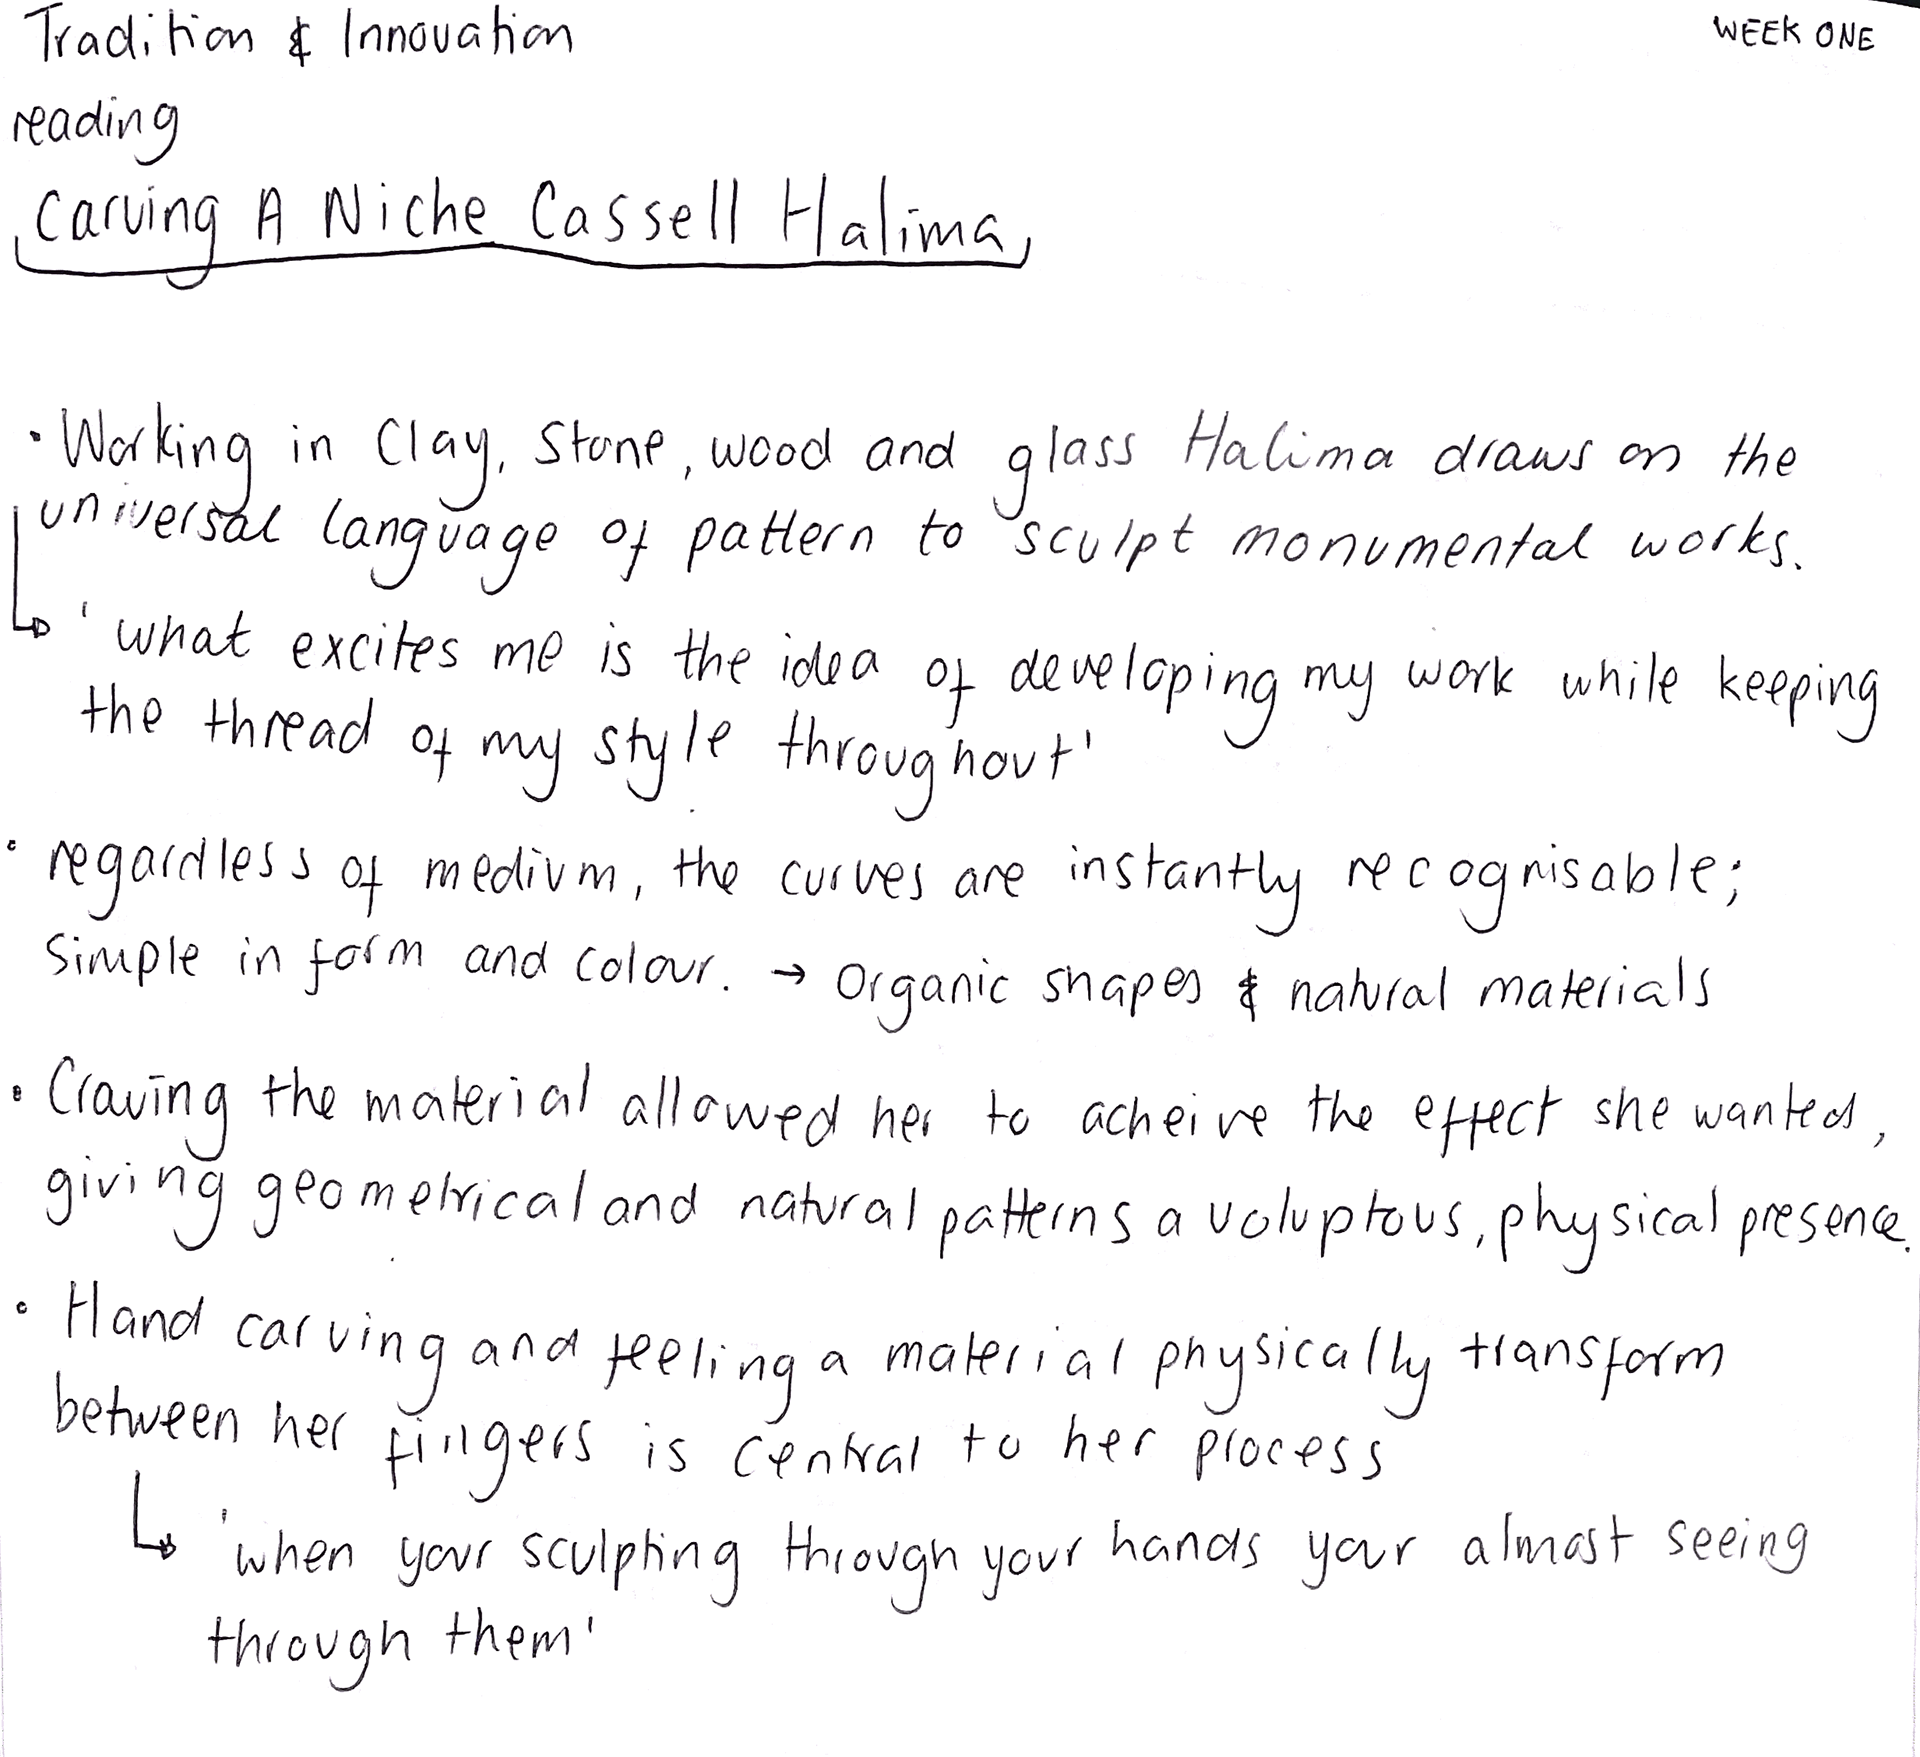 Tradition & Innovation
WEEK ONE
reading
Carving A Niche Cassell Halima
• Working in Clay, Stone, wood and glass Halima draws on the
universal language of pattern to sculpt monumental works.
↳ 'what excites me is the idea of developing my work while keeping
the thread of my style throughout'
• regardless of medium, the curves are instantly recognisable;
simple in form and colour. → Organic shapes & natural materials
• Craving the material allowed her to acheive the effect she wanted,
giving geometrical and natural patterns a voluptous, physical presence.
• Hand carving and feeling a material physically transform
between her fingers is central to her process
↳ 'when your sculpting through your hands your almost seeing
through them'